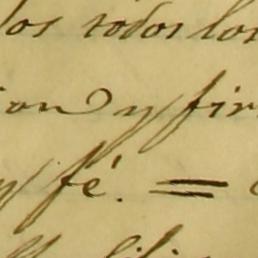 los todos los
ion y fir
y fé. =